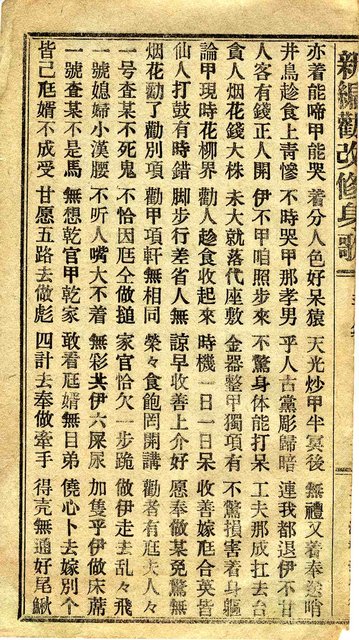 新編勸改修身歌
亦着能啼甲能哭 着分人色好呆猿 天光炒甲半冥後 無禮又着奉送哨
井鳥趁食上青慘 不時哭甲那孝男 乎人古黨彫歸暗 連我都退伊不甘
人客有錢正人開 伊不甲咱照步來 不驚身体能打呆 工夫那成扛去台
貪人烟花錢大株 未大就落代座敷 金器整甲獨項有 不驚損害着身軀
論甲現時花柳界 勸人趁食收起來 時機一日一日呆 收善嫁尪合英皆
仙人打鼓有時錯 脚步行差省人無 諒早收善上介好 愿奉做某免驚無
烟花勸了勸別項 勸甲項軒無相同 榮々食飽罔開講 勸者有尪夫人々
一号查某不死鬼 不恰因尪仝做搥 家官恰欠一步跪 做伊走去乱々飛
一號媳婦小漢腰 不听人嘴大不着 無彩其伊六屎尿 加隻乎伊做床蓆
一號查某不是馬 無想乾官甲乾家 敢看尪婿無日弟 僥心卜去嫁別个
皆己尪婿不成受 甘愿五路去做彪 四計去奉做牽手 得壳無通好尾鰍